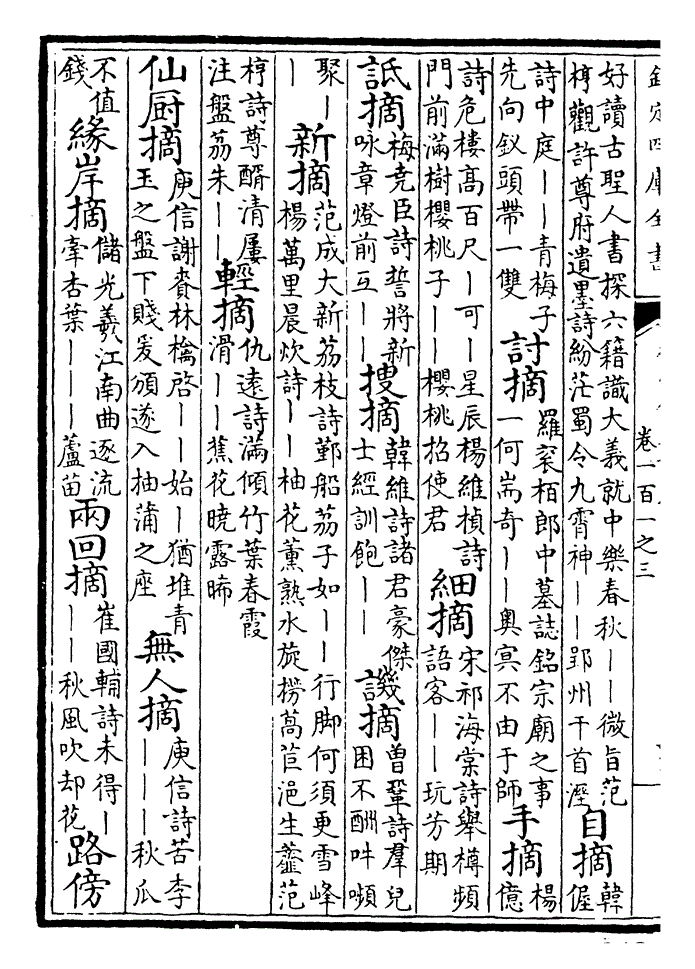 欽定四庫全書
卷一百一之三
好讀古聖人書探六籍識大義就中樂春秋——微旨范
梈觀許尊府遺墨詩紛茫蜀令九霄神——郢州干首溼
自摘
韓
偓
詩中庭——青梅子
先向釵頭帶一雙
討摘
羅袞栢郎中墓誌銘宗廟之事
一何耑奇——奧㝠不由于師
手摘
楊
億
詩危樓髙百尺—可—星辰楊維楨詩
門前滿樹櫻桃子——櫻桃招使君
細摘
宋祁海棠詩舉樽頻
語客——玩芳期
詆摘
梅堯臣詩誓將新
咏章燈前互——
搜摘
韓維詩諸君豪傑
士經訓飽——
譏摘
曾鞏詩羣兒
困不酬吽嚬
聚—
—
新摘
范成大新荔枝詩鄞船荔子如——行脚何須更雪峰
楊萬里晨炊詩——柚花薰熟水旋撈萵苣浥生虀范
梈詩尊酳清屢
注盤荔朱——
輕摘
仇遠詩滿傾竹葉春霞
滑——蕉花曉露晞
仙厨摘
庾信謝賚林檎啓——始—猶堆青
玉之盤下賤爰頒遂入抽蒲之座
無人摘
庾信詩苦李
———秋瓜
不值
錢
緣岸摘
儲光羲江南曲逐流
牽杏葉———蘆苗
兩回摘
崔國輔詩未得—
——秋風吹却花
路傍